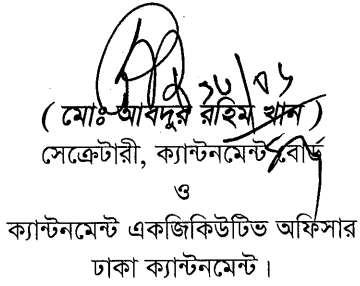 (মোঃ আবদুর রহিম খান)
সেক্রেটারী, ক্যান্টনমেন্ট বোর্ড
ও
ক্যান্টনমেন্ট একজিকিউটিভ অফিসার
ঢাকা ক্যান্টনমেন্ট।